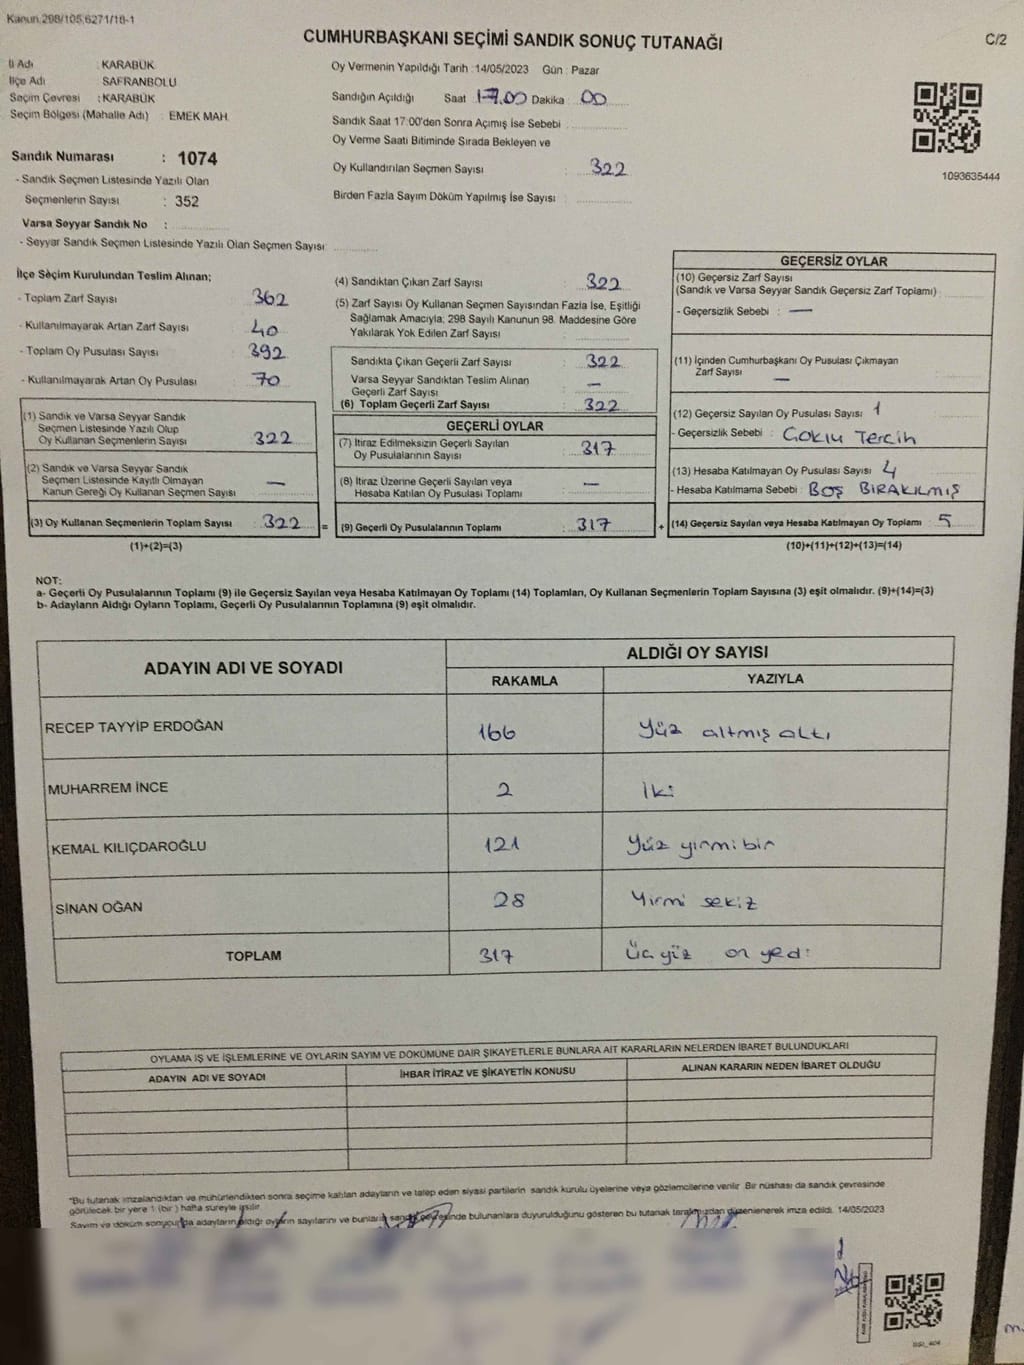 Kanun 298/105,6271/18-1
CUMHURBAŞKANI SEÇİMİ SANDIK SONUÇ TUTANAĞI
C/2
İl Adı : KARABÜK
İlçe Adı SAFRANBOLU
Seçim Çevresi : KARABÜK
Seçim Bölgesi (Mahalle Adı) : EMEK MAH.
Sandık Numarası : 1074
- Sandık Seçmen Listesinde Yazılı Olan
Seçmenlerin Sayısı : 352
Varsa Seyyar Sandık No :
- Seyyar Sandık Seçmen Listesinde Yazılı Olan Seçmen Sayısı
Oy Vermenin Yapıldığı Tarih : 14/05/2023 Gün : Pazar
Sandığın Açıldığı Saat 17.00 Dakika 00
Sandık Saat 17:00'den Sonra Açımış İse Sebebi
Oy Verme Saati Bitiminde Sırada Bekleyen ve
Oy Kullandırılan Seçmen Sayısı : 322
Birden Fazla Sayım Döküm Yapılmış İse Sayısı :
1093635444
İlçe Seçim Kurulundan Teslim Alınan;
- Toplam Zarf Sayısı 362
- Kullanılmayarak Artan Zarf Sayısı 40
- Toplam Oy Pusulası Sayısı 392
- Kullanılmayarak Artan Oy Pusulası 70
(1) Sandık ve Varsa Seyyar Sandık
Seçmen Listesinde Yazılı Olup
Oy Kullanan Seçmenlerin Sayısı 322
(2) Sandık ve Varsa Seyyar Sandık
Seçmen Listesinde Kayıtlı Olmayan
Kanun Gereği Oy Kullanan Seçmen Sayısı —
(3) Oy Kullanan Seçmenlerin Toplam Sayısı : 322 =
(1)+(2)=(3)
(4) Sandıktan Çıkan Zarf Sayısı : 322
(5) Zarf Sayısı Oy Kullanan Seçmen Sayısından Fazla İse, Eşitliği
Sağlamak Amacıyla; 298 Sayılı Kanunun 98. Maddesine Göre
Yakılarak Yok Edilen Zarf Sayısı
Sandıkta Çıkan Geçerli Zarf Sayısı : 322
Varsa Seyyar Sandıktan Teslim Alınan
Geçerli Zarf Sayısı —
(6) Toplam Geçerli Zarf Sayısı : 322
GEÇERLİ OYLAR
(7) İtiraz Edilmeksizin Geçerli Sayılan
Oy Pusulalarının Sayısı : 317
(8) İtiraz Üzerine Geçerli Sayılan veya
Hesaba Katılan Oy Pusulası Toplamı : —
(9) Geçerli Oy Pusulalarının Toplamı : 317 +
GEÇERSİZ OYLAR
(10) Geçersiz Zarf Sayısı
(Sandık ve Varsa Seyyar Sandık Geçersiz Zarf Toplamı) :
- Geçersizlik Sebebi : —
(11) İçinden Cumhurbaşkanı Oy Pusulası Çıkmayan
Zarf Sayısı —
(12) Geçersiz Sayılan Oy Pusulası Sayısı : 1
- Geçersizlik Sebebi : Çoklu Tercih
(13) Hesaba Katılmayan Oy Pusulası Sayısı : 4
- Hesaba Katılmama Sebebi : BOŞ BIRAKILMIŞ
(14) Geçersiz Sayılan veya Hesaba Katılmayan Oy Toplamı : 5
(10)+(11)+(12)+(13)=(14)
NOT:
a- Geçerli Oy Pusulalarının Toplamı (9) ile Geçersiz Sayılan veya Hesaba Katılmayan Oy Toplamı (14) Toplamları, Oy Kullanan Seçmenlerin Toplam Sayısına (3) eşit olmalıdır. (9)+(14)=(3)
b- Adayların Aldığı Oyların Toplamı, Geçerli Oy Pusulalarının Toplamına (9) eşit olmalıdır.
ADAYIN ADI VE SOYADI
ALDIĞI OY SAYISI
RAKAMLA YAZIYLA
RECEP TAYYİP ERDOĞAN 166 Yüz altmış altı
MUHARREM İNCE 2 İki
KEMAL KILIÇDAROĞLU 121 Yüz yirmi bir
SİNAN OĞAN 28 Yirmi sekiz
TOPLAM 317 Üç yüz on yedi
OYLAMA İŞ VE İŞLEMLERİNE VE OYLARIN SAYIM VE DÖKÜMÜNE DAİR ŞİKAYETLERLE BUNLARA AİT KARARLARIN NELERDEN İBARET BULUNDUKLARI
ADAYIN ADI VE SOYADI İHBAR İTİRAZ VE ŞİKAYETİN KONUSU ALINAN KARARIN NEDEN İBARET OLDUĞU
*Bu tutanak imzalandıktan ve mühürlendikten sonra seçime katılan adayların ve talep eden siyasi partilerin sandık kurulu üyelerine veya gözlemcilerine verilir. Bir nüshası da sandık çevresinde
görülecek bir yere 1 (bir) hafta süreyle asılır.
Sayım ve döküm sonucunda adayların aldığı oyların sayılarını ve bunların sandık çevresinde bulunanlara duyurulduğunu gösteren bu tutanak tarafımızdan düzenlenerek imza edildi. 14/05/2023